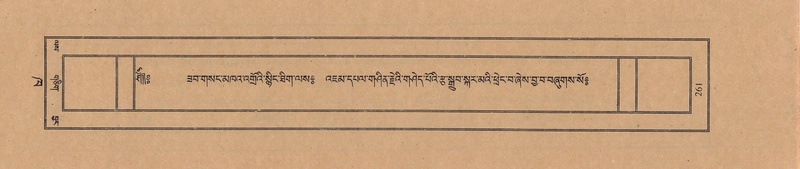 ༄༅༅༔ ཟབ་གསང་མཁའ་འགྲོའི་སྙིང་ཐིག་ལས༔ འཇམ་དཔལ་གཤིན་རྗེའི་གཤེད་པོའི་རྩ་སྒྲུབ་སྐར་མའི་ཕྲེང་བ་ཞེས་བྱ་བ་བཞུགས་སོ༔
གཅིག
261